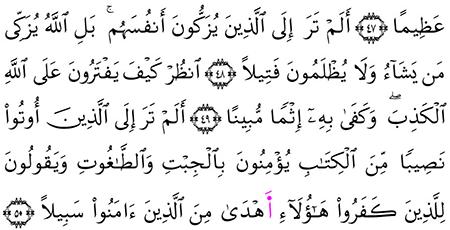 عَظِيمًا ﴿٤٧﴾ أَلَمْ تَرَ إِلَى ٱلَّذِينَ يُزَكُّونَ أَنفُسَهُم ۚ بَلِ ٱللَّهُ يُزَكِّى
مَن يَشَآءُ وَلَا يُظْلَمُونَ فَتِيلاً ﴿٤٨﴾ ٱنظُرْ كَيْفَ يَفْتَرُونَ عَلَى ٱللَّهِ
ٱلْكَذِبَ ۖ وَكَفَىٰ بِهِۦٓ إِثْمًا مُّبِينًا ﴿٤٩﴾ أَلَمْ تَرَ إِلَى ٱلَّذِينَ أُوتُوا۟
نَصِيبًا مِّنَ ٱلْكِتَـٰبِ يُؤْمِنُونَ بِٱلْجِبْتِ وَٱلطَّـٰغُوتِ وَيَقُولُونَ
لِلَّذِينَ كَفَرُوا۟ هَـٰٓؤُلَآءِ أَهْدَىٰ مِنَ ٱلَّذِينَ ءَامَنُوا۟ سَبِيلاً ﴿٥٠﴾